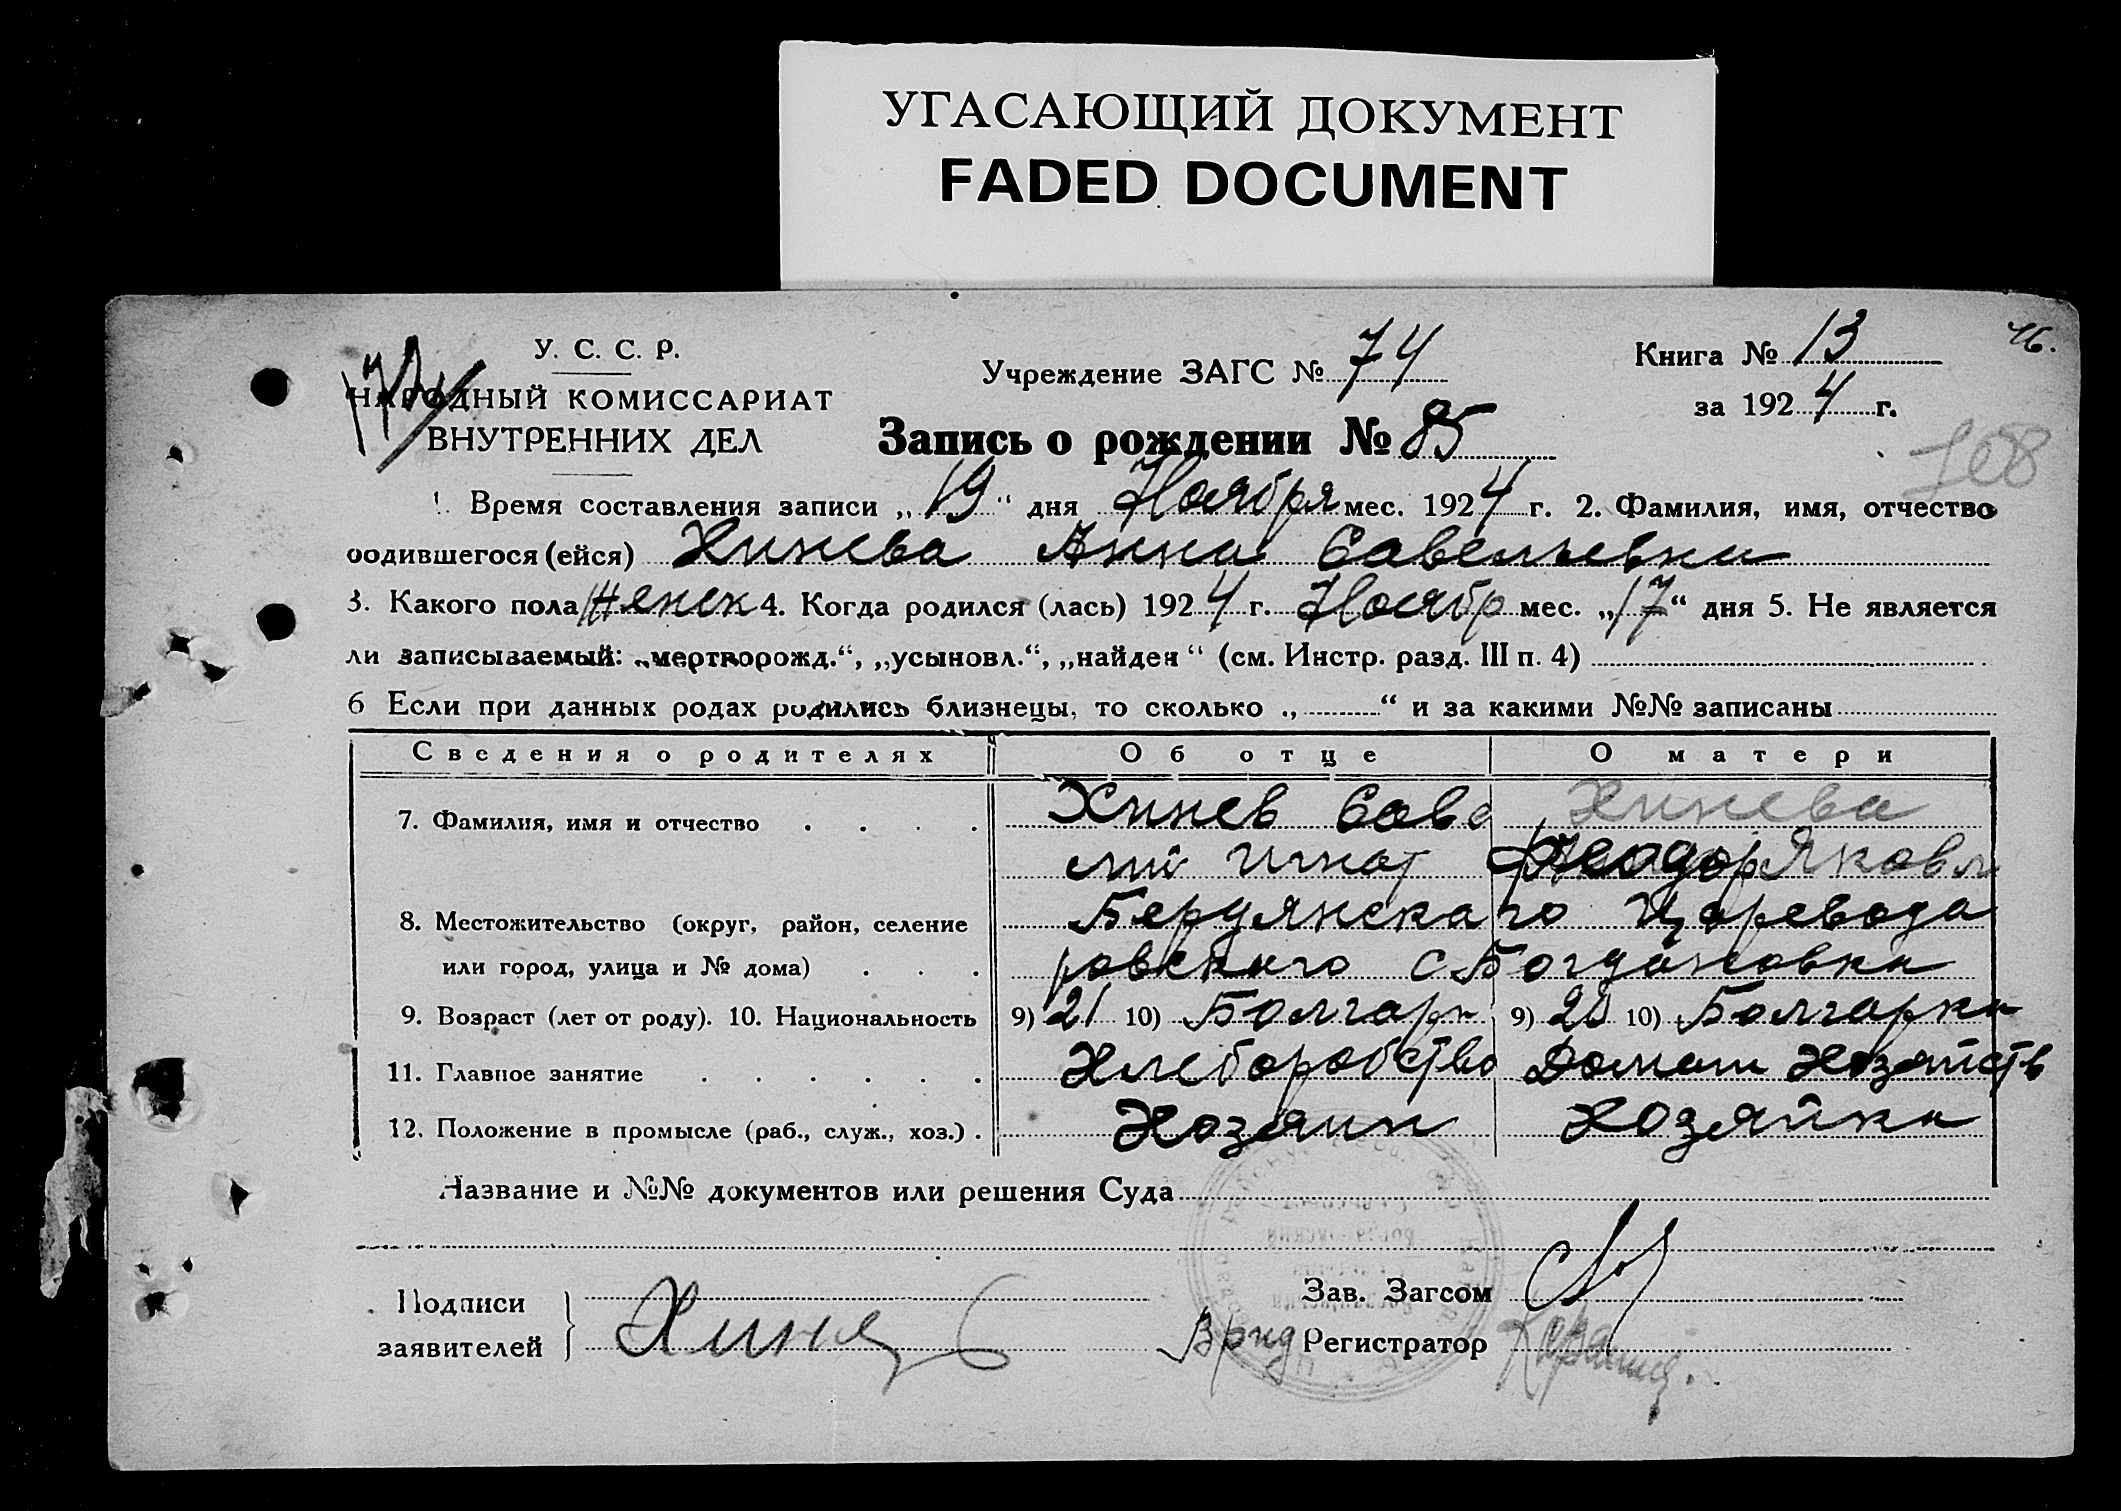 УГАСАЮЩИЙ ДОКУМЕНТ
FADED DOCUMENT
У. С. С. Р.
НАРОДНЫЙ КОМИССАРИАТ
ВНУТРЕННИХ ДЕЛ
Учреждение ЗАГС № 74
Книга № 13
76.
за 1924 г.
Запись о рождении № 85
108
1. Время составления записи „19“ дня Ноября мес. 1924 г. 2. Фамилия, имя, отчество
родившегося (ейся) Хинева Анна Савельевна
3. Какого пола женск 4. Когда родился (лась) 1924 г. Ноябр мес. „17“ дня 5. Не является
ли записываемый: „мертворожд.“, „усыновл.“, „найден“ (см. Инстр. разд. III п. 4)
6 Если при данных родах родились близнецы, то сколько „ “ и за какими №№ записаны
Сведения о родителях Об отце О матери
7. Фамилия, имя и отчество Хинев Саве Хинева
лий Игнат Феодор Яковл
8. Местожительство (округ, район, селение Бердянскаго Царевода
или город, улица и № дома) ровскаго с Богдановки
9. Возраст (лет от роду). 10. Национальность 9) 21 10) Болгарн 9) 20 10) Болгарка
11. Главное занятие Хлеборобство Домаш Хозяйств
12. Положение в промысле (раб., служ., хоз.) Хозяин Хозяйка
Название и №№ документов или решения Суда
Подписи
заявителей
Хинев
Зав. Загсом
Врид Регистратор